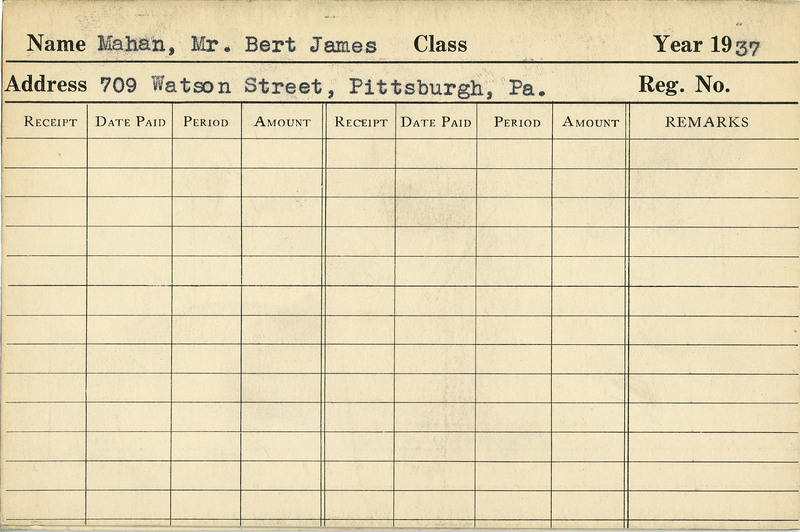 Name Mahan, Mr. Bert James Class Year 1937
Address 709 Watson Street, Pittsburgh, Pa. Reg. No.
RECEIPT DATE PAID PERIOD AMOUNT RECEIPT DATE PAID PERIOD AMOUNT REMARKS